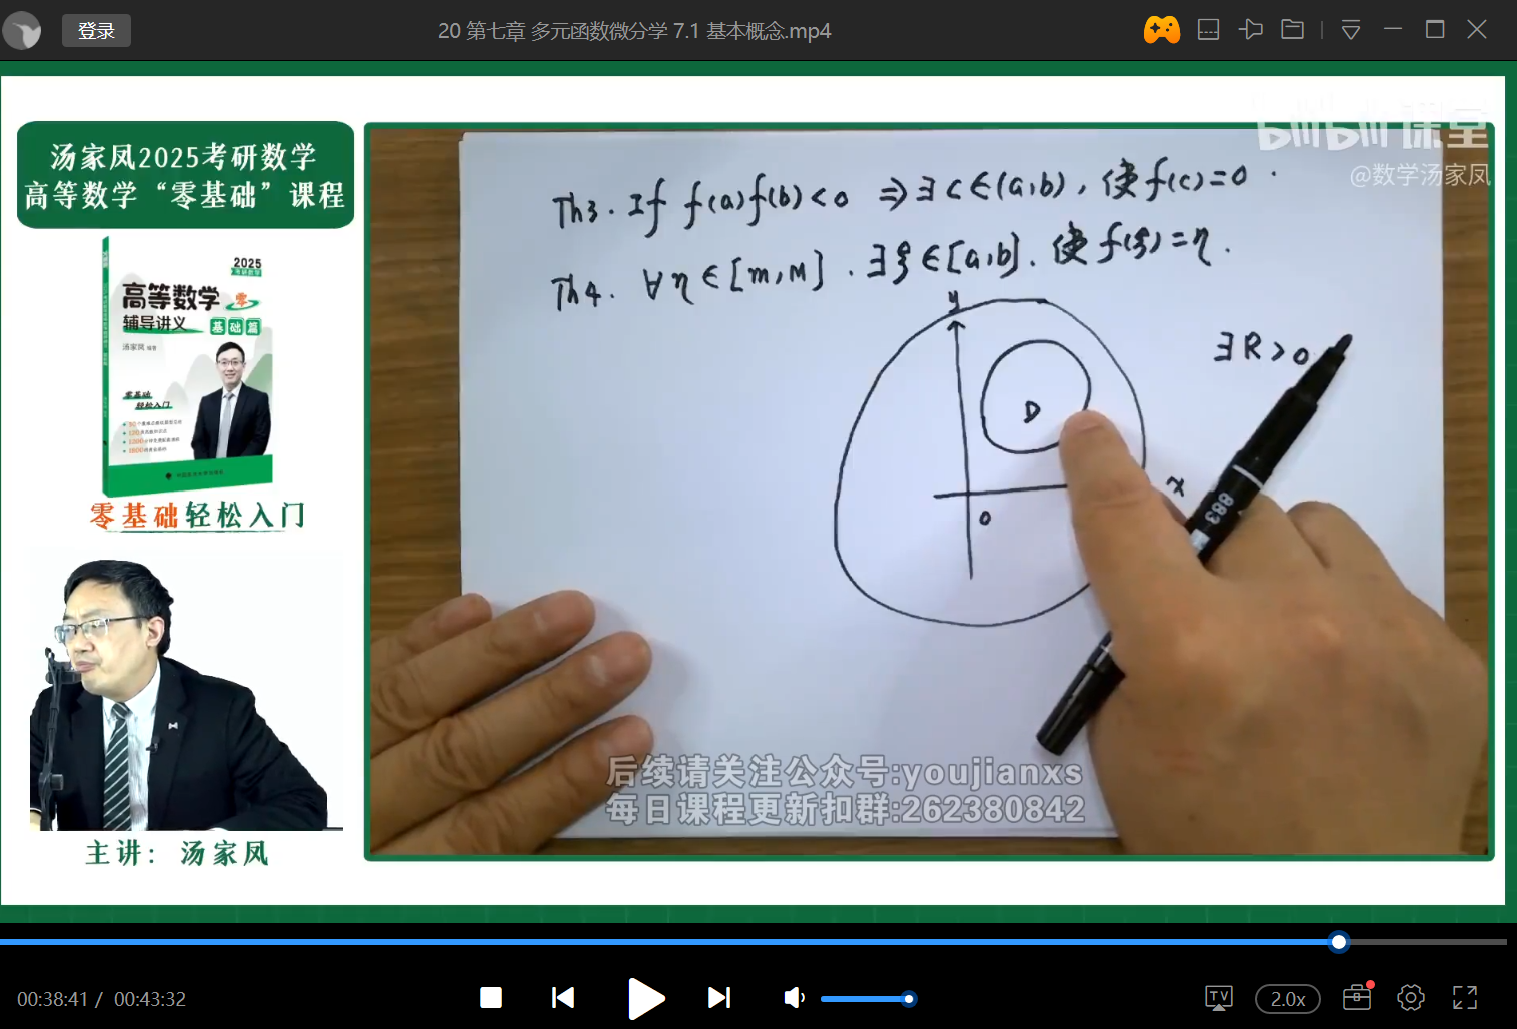 登录
20 第七章 多元函数微分学 7.1 基本概念.mp4
汤家凤2025考研数学
高等数学“零基础”课程
2025
考研数学
高等数学 零
辅导讲义 基础篇
汤家凤 编著
零基础
轻松入门
零基础轻松入门
主讲：汤家凤
bilibili课堂
@数学汤家凤
Th3. If f(a)f(b)<0 ⇒∃c∈(a,b), 使f(c)=0.
Th4. ∀η∈[m,M]. ∃ξ∈[a,b]. 使f(ξ)=η.
y
∃R>0
D
x
0
883
后续请关注公众号:youjianxs
每日课程更新扣群:262380842
00:38:41 / 00:43:32
TV
2.0x